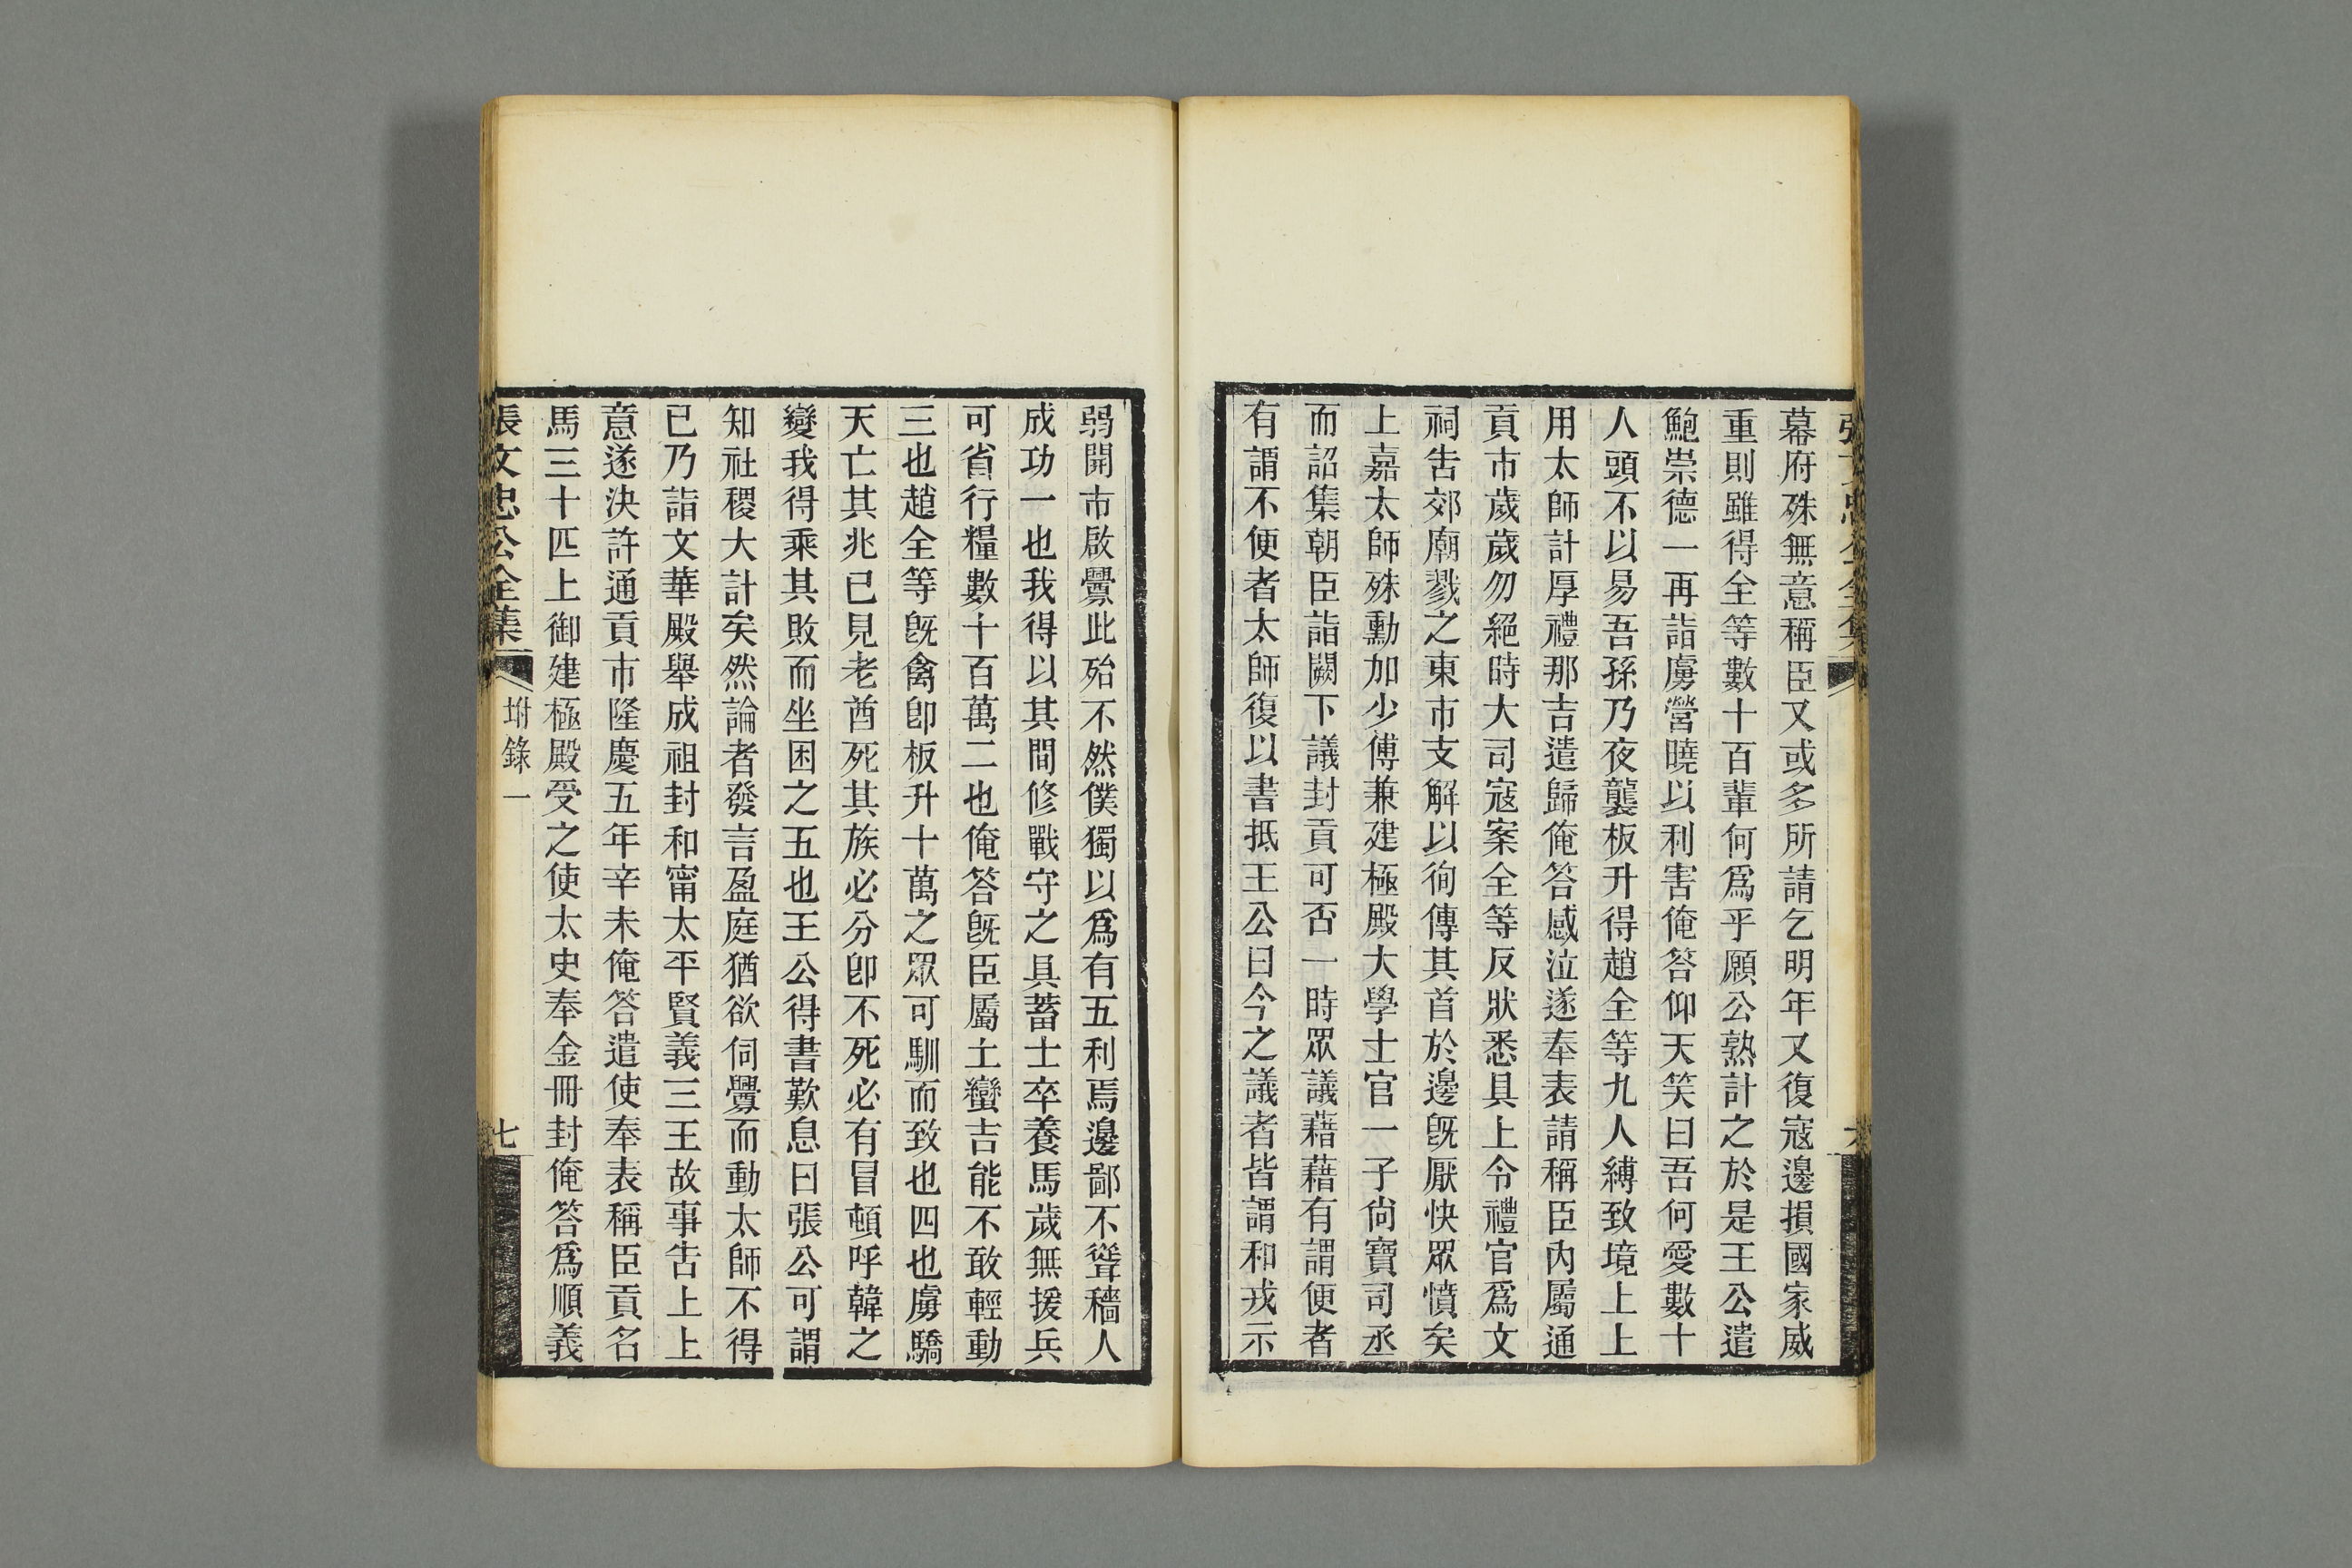 幕府殊無意稱臣又或多所請乞明年又復寇邊損國家威
重則雖得全等數十百輩何爲乎願公熟計之於是王公遣
鮑崇德一再詣虜營曉以利害俺答仰天笑曰吾何愛數十
人頭不以易吾孫乃夜襲板升得趙全等九人縛致境上上
用太師計厚禮那吉遣歸俺答感泣遂奉表請稱臣內屬通
貢市歲歲勿絕時大司寇案全等反狀悉具上令禮官爲文
祠告郊廟戮之東市支解以徇傳其首於邊旣厭快眾憤矣
上嘉太師殊勳加少傅兼建極殿大學士官一子尙寶司丞
而詔集朝臣詣闕下議封貢可否一時眾議藉藉有謂便者
有謂不便者太師復以書抵王公曰今之議者皆謂和戎示
弱開市啟釁此殆不然僕獨以爲有五利焉邊鄙不聳穡人
成功一也我得以其間修戰守之具蓄士卒養馬歲無援兵
可省行糧數十百萬二也俺答旣臣屬土蠻吉能不敢輕動
三也趙全等旣禽卽板升十萬之眾可馴而致也四也虜驕
天亡其兆已見老酋死其族必分卽不死必有冒頓呼韓之
變我得乘其敗而坐困之五也王公得書歎息曰張公可謂
知社稷大計矣然論者發言盈庭猶欲伺釁而動太師不得
已乃詣文華殿舉成祖封和甯太平賢義三王故事告上上
意遂決許通貢市隆慶五年辛未俺答遣使奉表稱臣貢名
馬三十匹上御建極殿受之使太史奉金冊封俺答爲順義
張文忠公全集 坿錄一 七